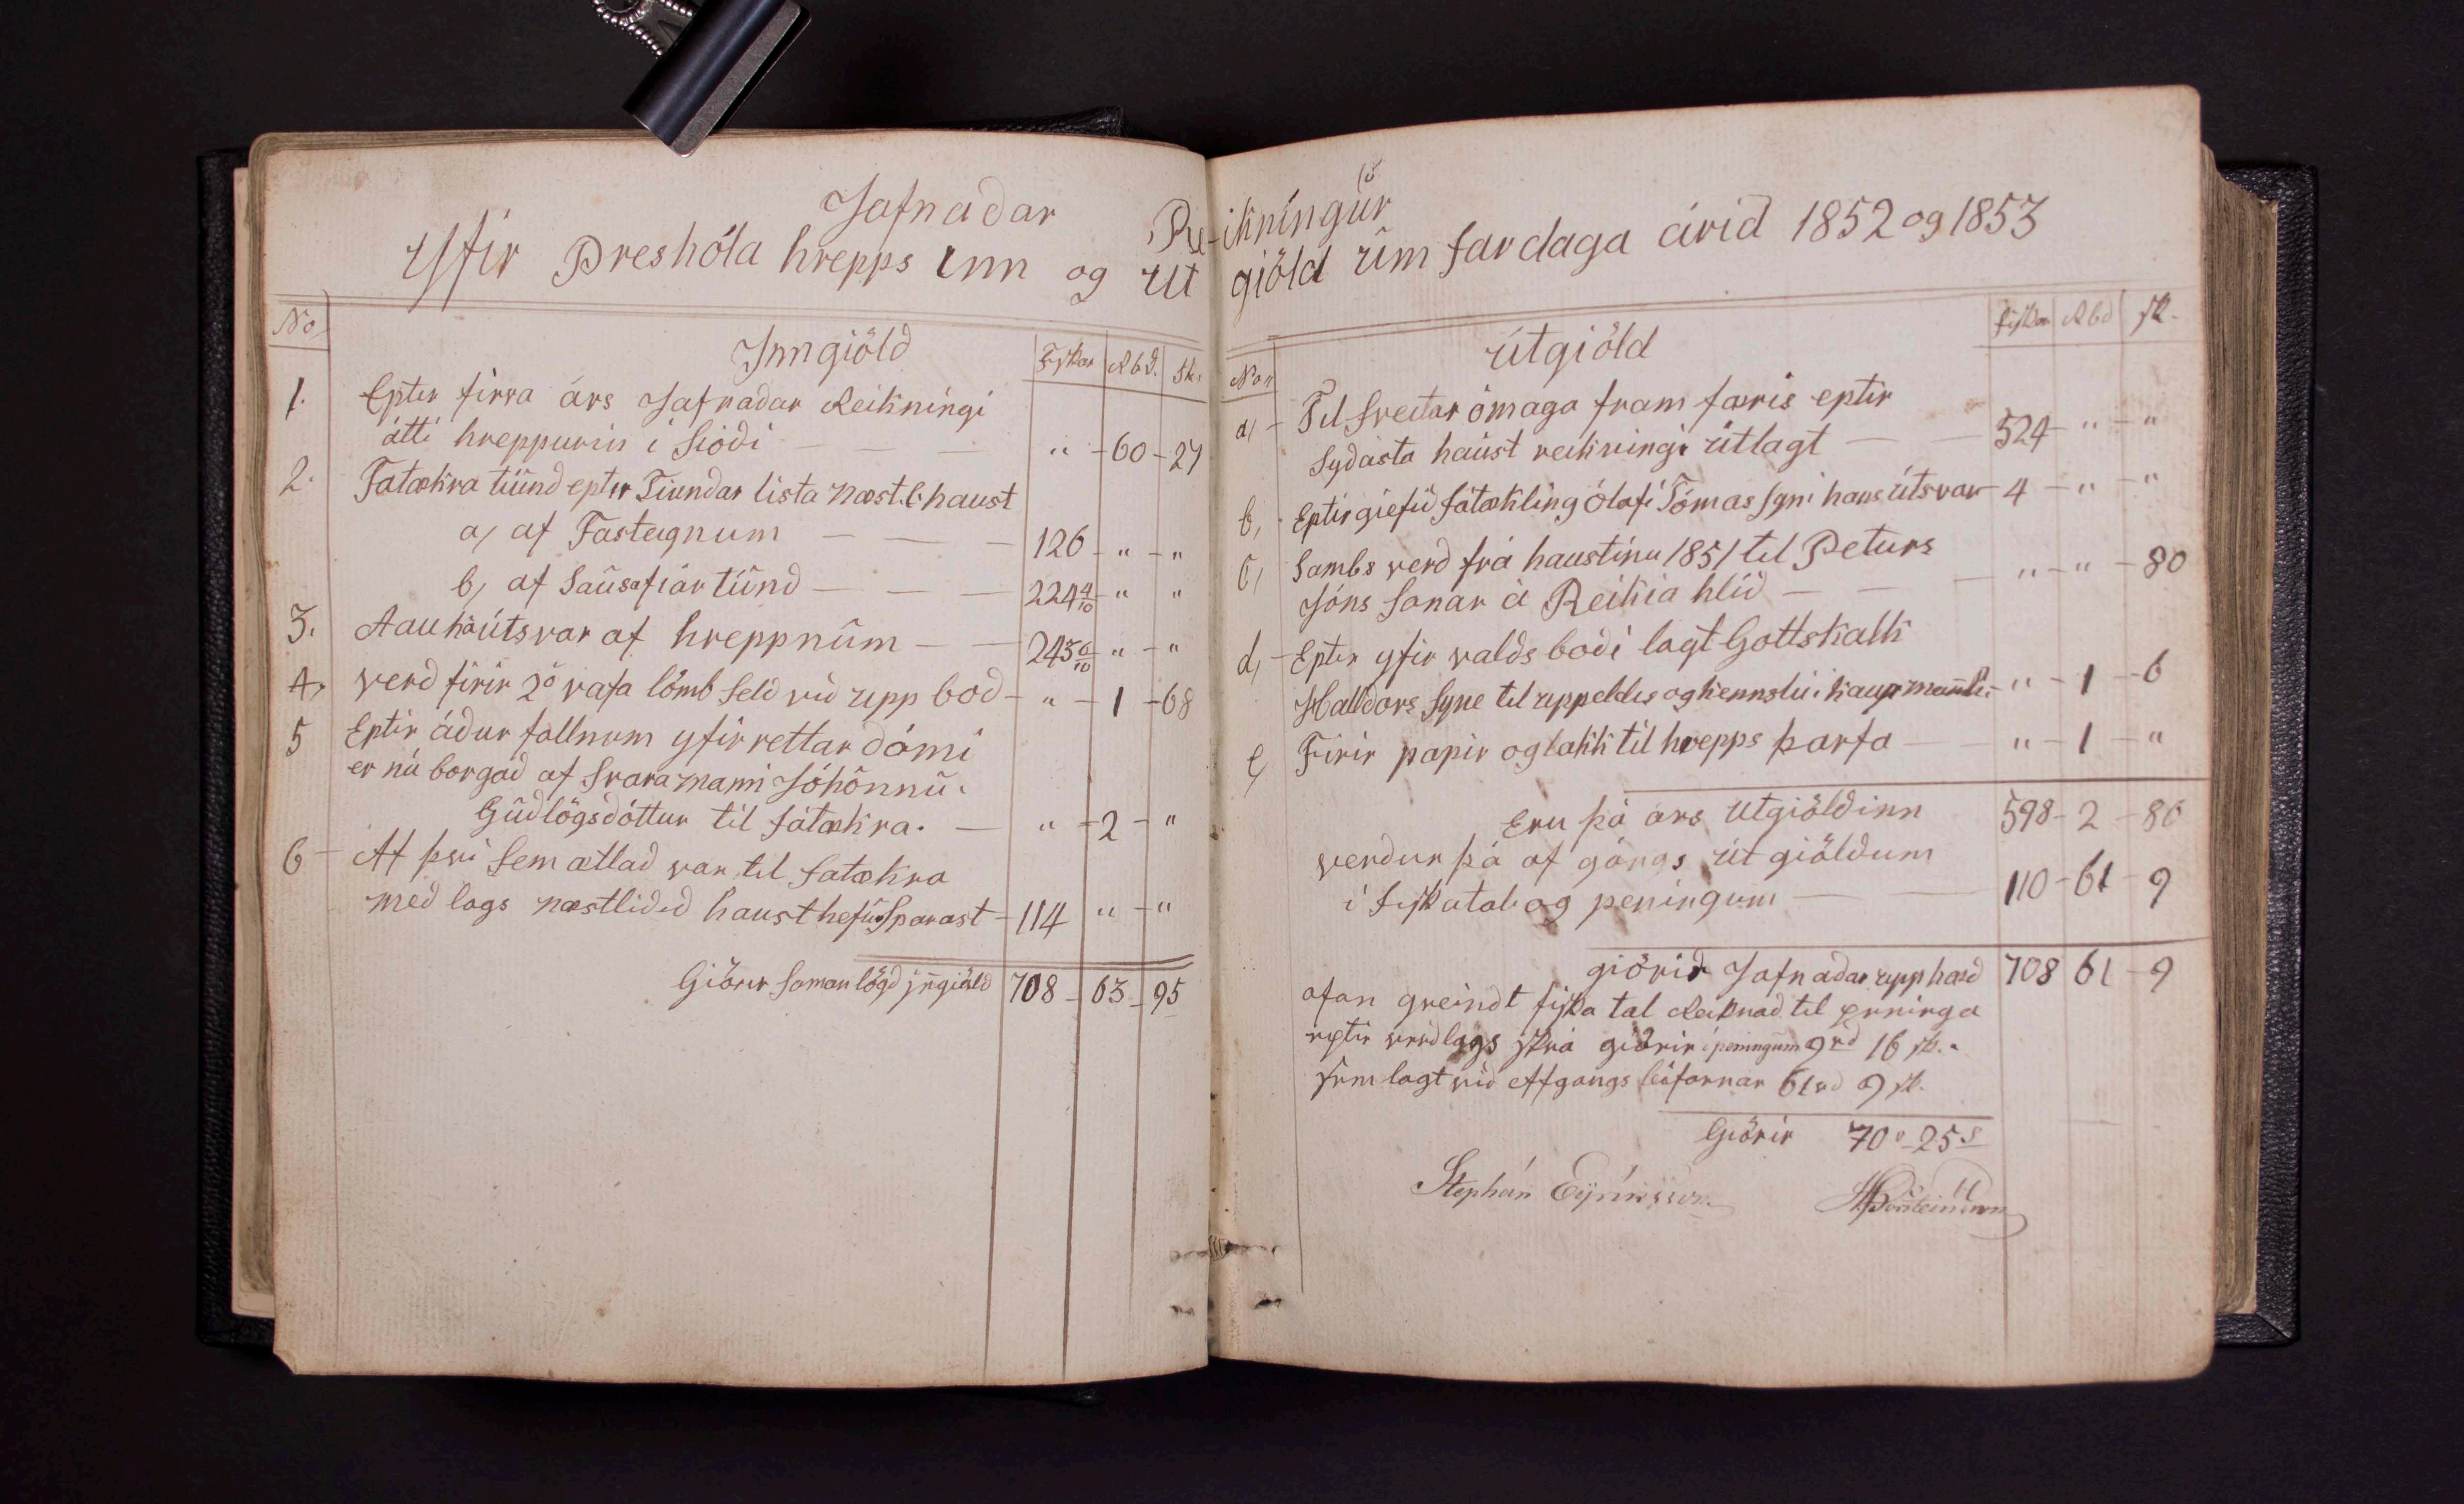 Jafnadar Reikníngur
Yfir Preshóla hrepps Inn og Ut giöld um fardaga árid 1852 og 1853
No
Inngiöld
Fiskar Rbd. Sk.
1. Epter firra árs Jafnadar Reikningi
átti hreppurin i Siódi — — " - 60 - 27
2. Fatækra tiund epter Tiundar lista næst l. haust
a, af Fasteignum — — — 126 - " - "
b, af Lausafiár tiund — — — 224 4/10 - " "
3. Auka útsvar af hreppnum — — 243 6/10 - " - "
4, verd firir 2ö vafa lömb Seld vid upp bod - " - 1 - 68
5 Eptir ádur follnum yfirrettar dómi
er nú borgad af Svaramanni Jóhönnu
Gudlögsdóttur til fátækra. — " - 2 - "
6 - Af þvi Sem ætlad var til fatækra
med lags næstlidid haust hefur Sparast - 114 " - "
Giörir Saman lögd inngiöld 708 - 63 - 95
No
Útgiöld
fiskar Rbd sk.
a, - Til Sveitar ómaga fram færis eptir
Sydasta haust reikningi útlagt — — 524 - " - "
b, Eptirgiefid fátækling Ólafi Tómas syni hans útsvar - 4 - " - "
c, Lambs verd frá haustinu 1851 til Peturs
Jóns Sonar á Reikia hlid — — — " - " - 80
d, - Epter yfir valds bodi lagt Gottskalk
Halldórs syne til uppeldis og kennslu i kaupmannh. - " - 1 - 6
e, Firir papir og lakk til hrepps þarfa — " - 1 - "
Eru þá árs Utgiöldinn 598 - 2 - 86
verdur þá af gángs út giöldum
i fiskatali og peningum — — 110 - 61 - 9
giörir Jafnadar upphæd 708 61 - 9
ofan greindt fiska tal Reiknad til peninga
eptir verdlags skrá giörir i peningum 9 rd 16 sk.
Sem lagt vid Afgangs leifarnar 61 rd 9 sk.
Giörir 70 - 25 s
Stephán Eyríksson Þorsteinsson